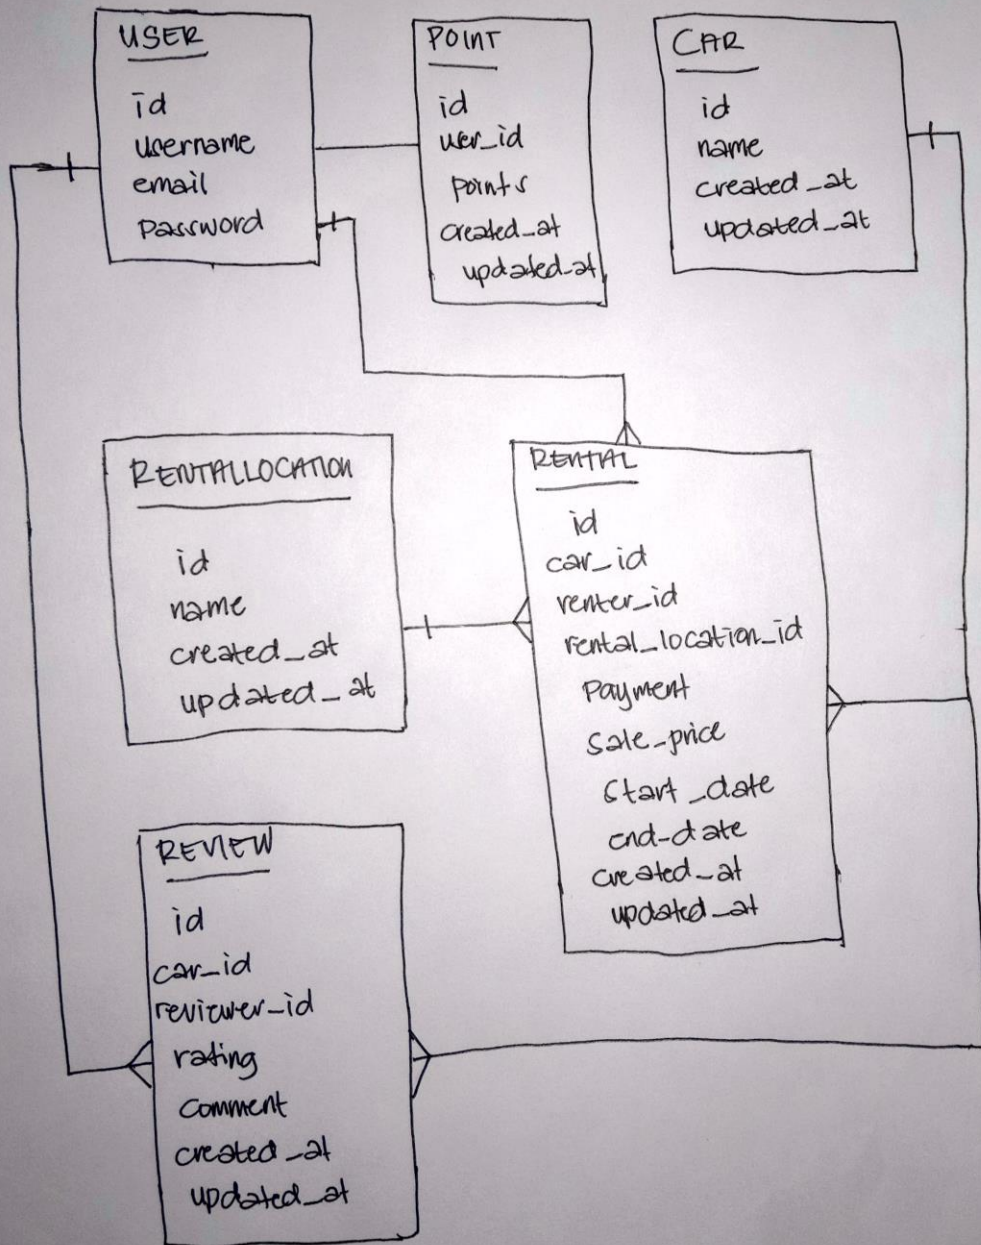 USER
id
username
email
password
POINT
id
user_id
points
created_at
updated_at
CAR
id
name
created_at
updated_at
RENTALLOCATION
id
name
created_at
updated_at
RENTAL
id
car_id
renter_id
rental_location_id
payment
sale_price
start_date
end-date
created_at
updated_at
REVIEW
id
car_id
reviewer_id
rating
comment
created_at
updated_at